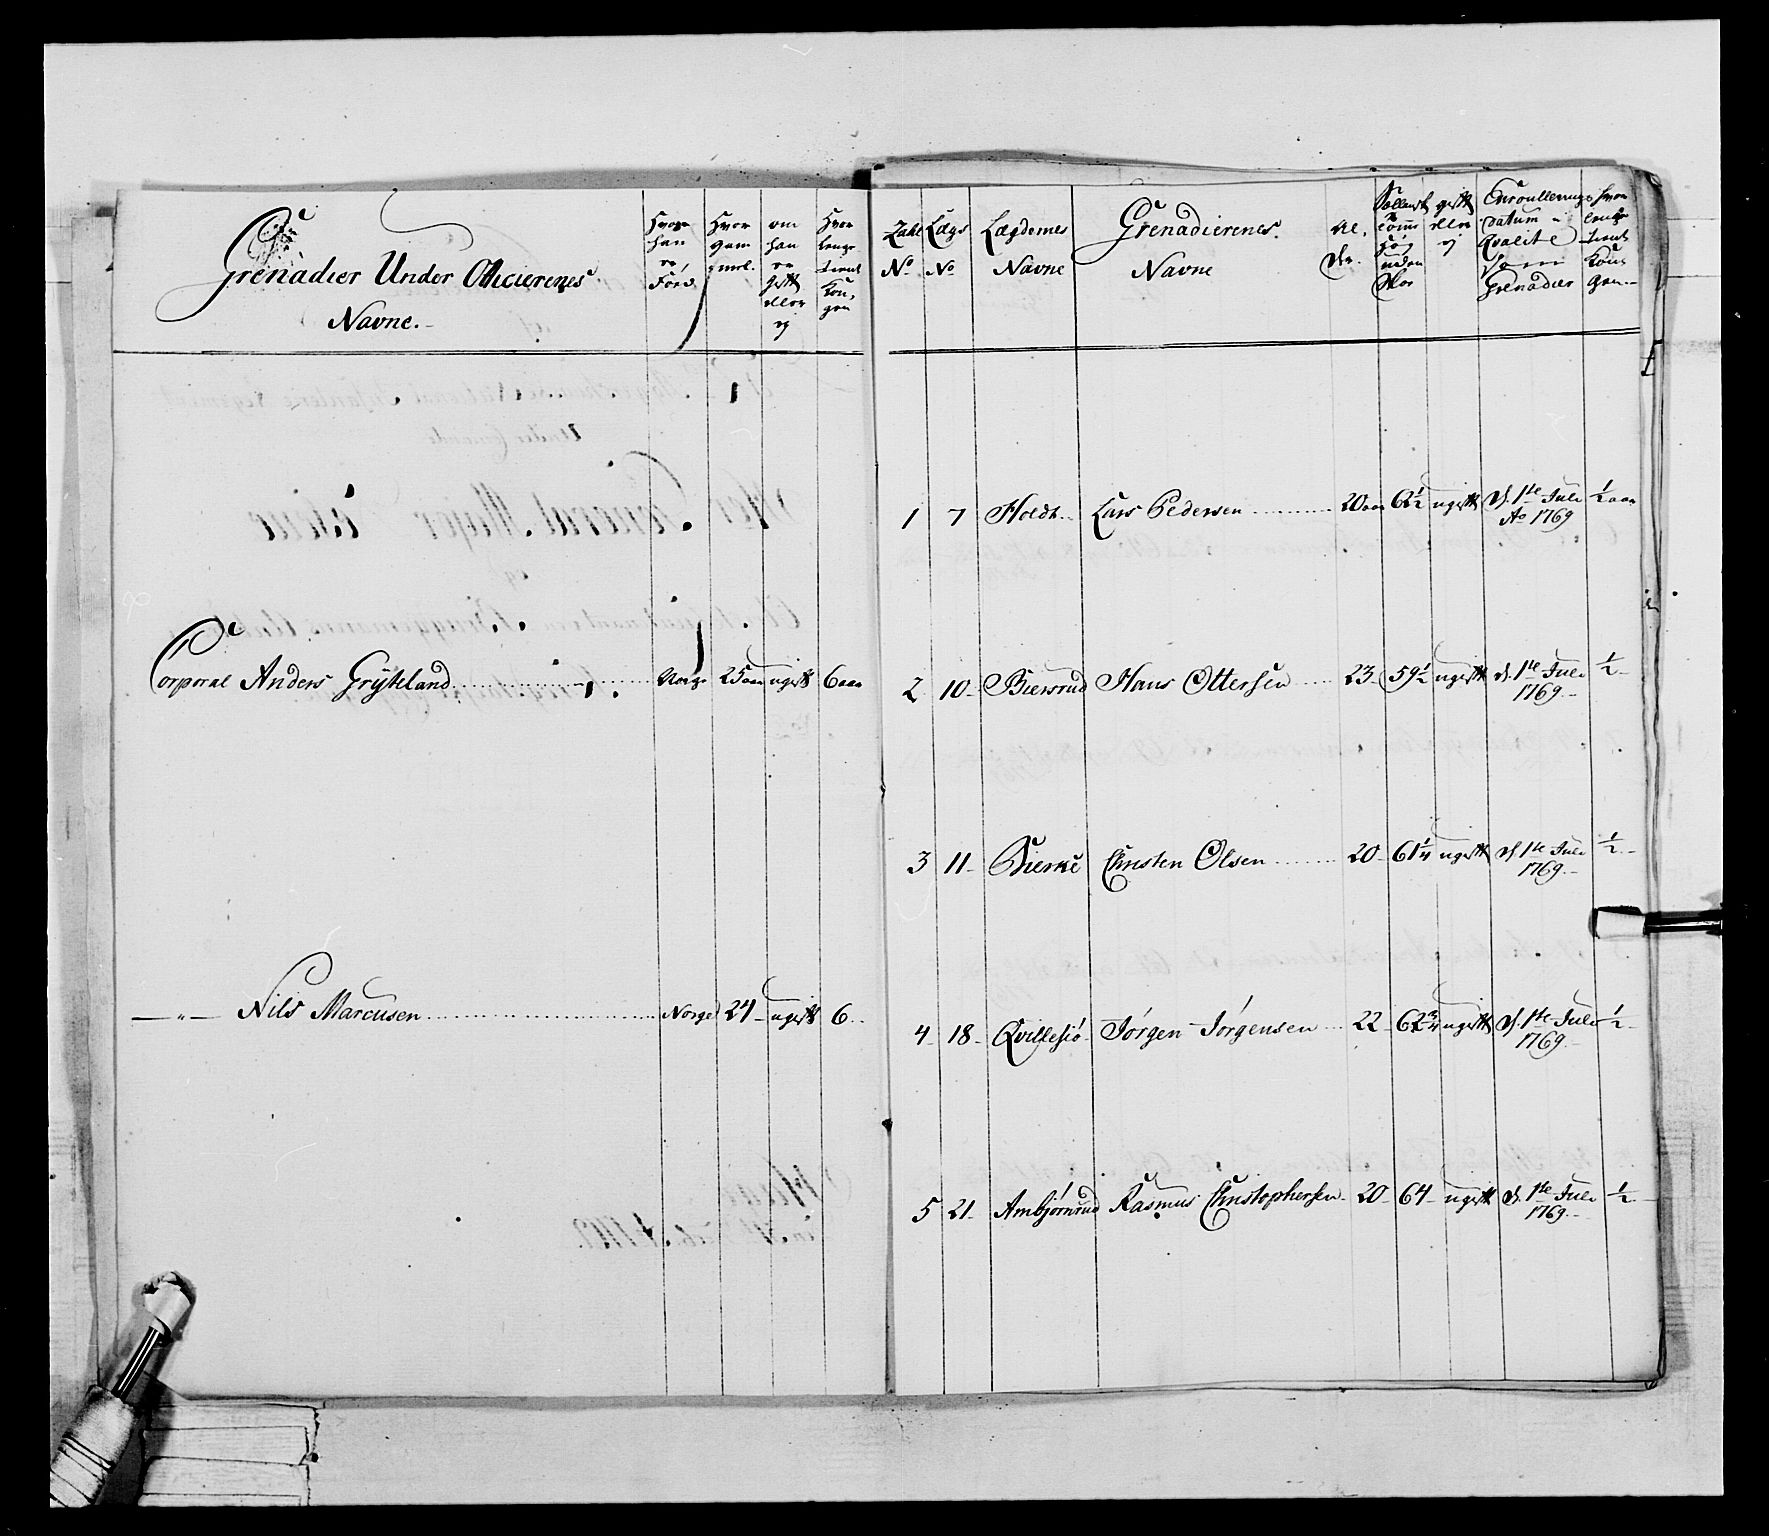 Grenadier Under Officierenes
Navne.
Hvor
han
er
Fød
Hvor
gam
mel.
om
han
er
gift
eller
ej
Hvor
lenge
tient
Kon,
gen
Corporal Anders Grytteland Norge 25 aar ugift 6 aar
—"— Nils Marcusen Norge 24 ugift 6
Zahl
No
Lægs
No
Lægdernes
Navne
Grenadierenes
Navne
Al,
der.
uden
Skoe
gift
eller
ej
Enroullerings
datum
Qvalité
som
Grenadier
Hvor
lenge
tient
Kon
gen
1 7 Holdt Lars Pedersen 20 aar 62½ ugift d. 1te Julii ½ aar
Ao 1769
2 10 Biersrud Hans Ottersen 23 59½ ugift d. 1te Julii ½
1769
3 11 Bierke Christen Olsen 20 61¼ ugift d. 1te Julii ½
1769
4 18 Qvillesiö Jörgen Jörgensen 22 62¾ ugift d. 1te Julii ½
1769
5 21 Ambjörnrud Rasmus Christophersen 20 64 ugift d. 1te Julii ½
1769